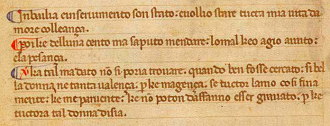 In balia cuserviumento son stato: cuollio stare tucta mia vita da
more colleança.
Poi ke delluna cento ma saputo mendare: lomal keo agio aunto:
ela pesança.
Altra tal madato no si poria trovare. quando ben fosse cercato. si bel
la donna ne tanta valença. per ke magença. se tuctor lamo cosi fina
mente: ke me parvente: ke no poton daffanno esser gravato: per ke
tuctora tal donna disia.